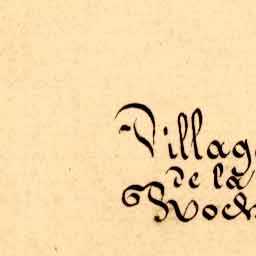 Villag
de la
Roch